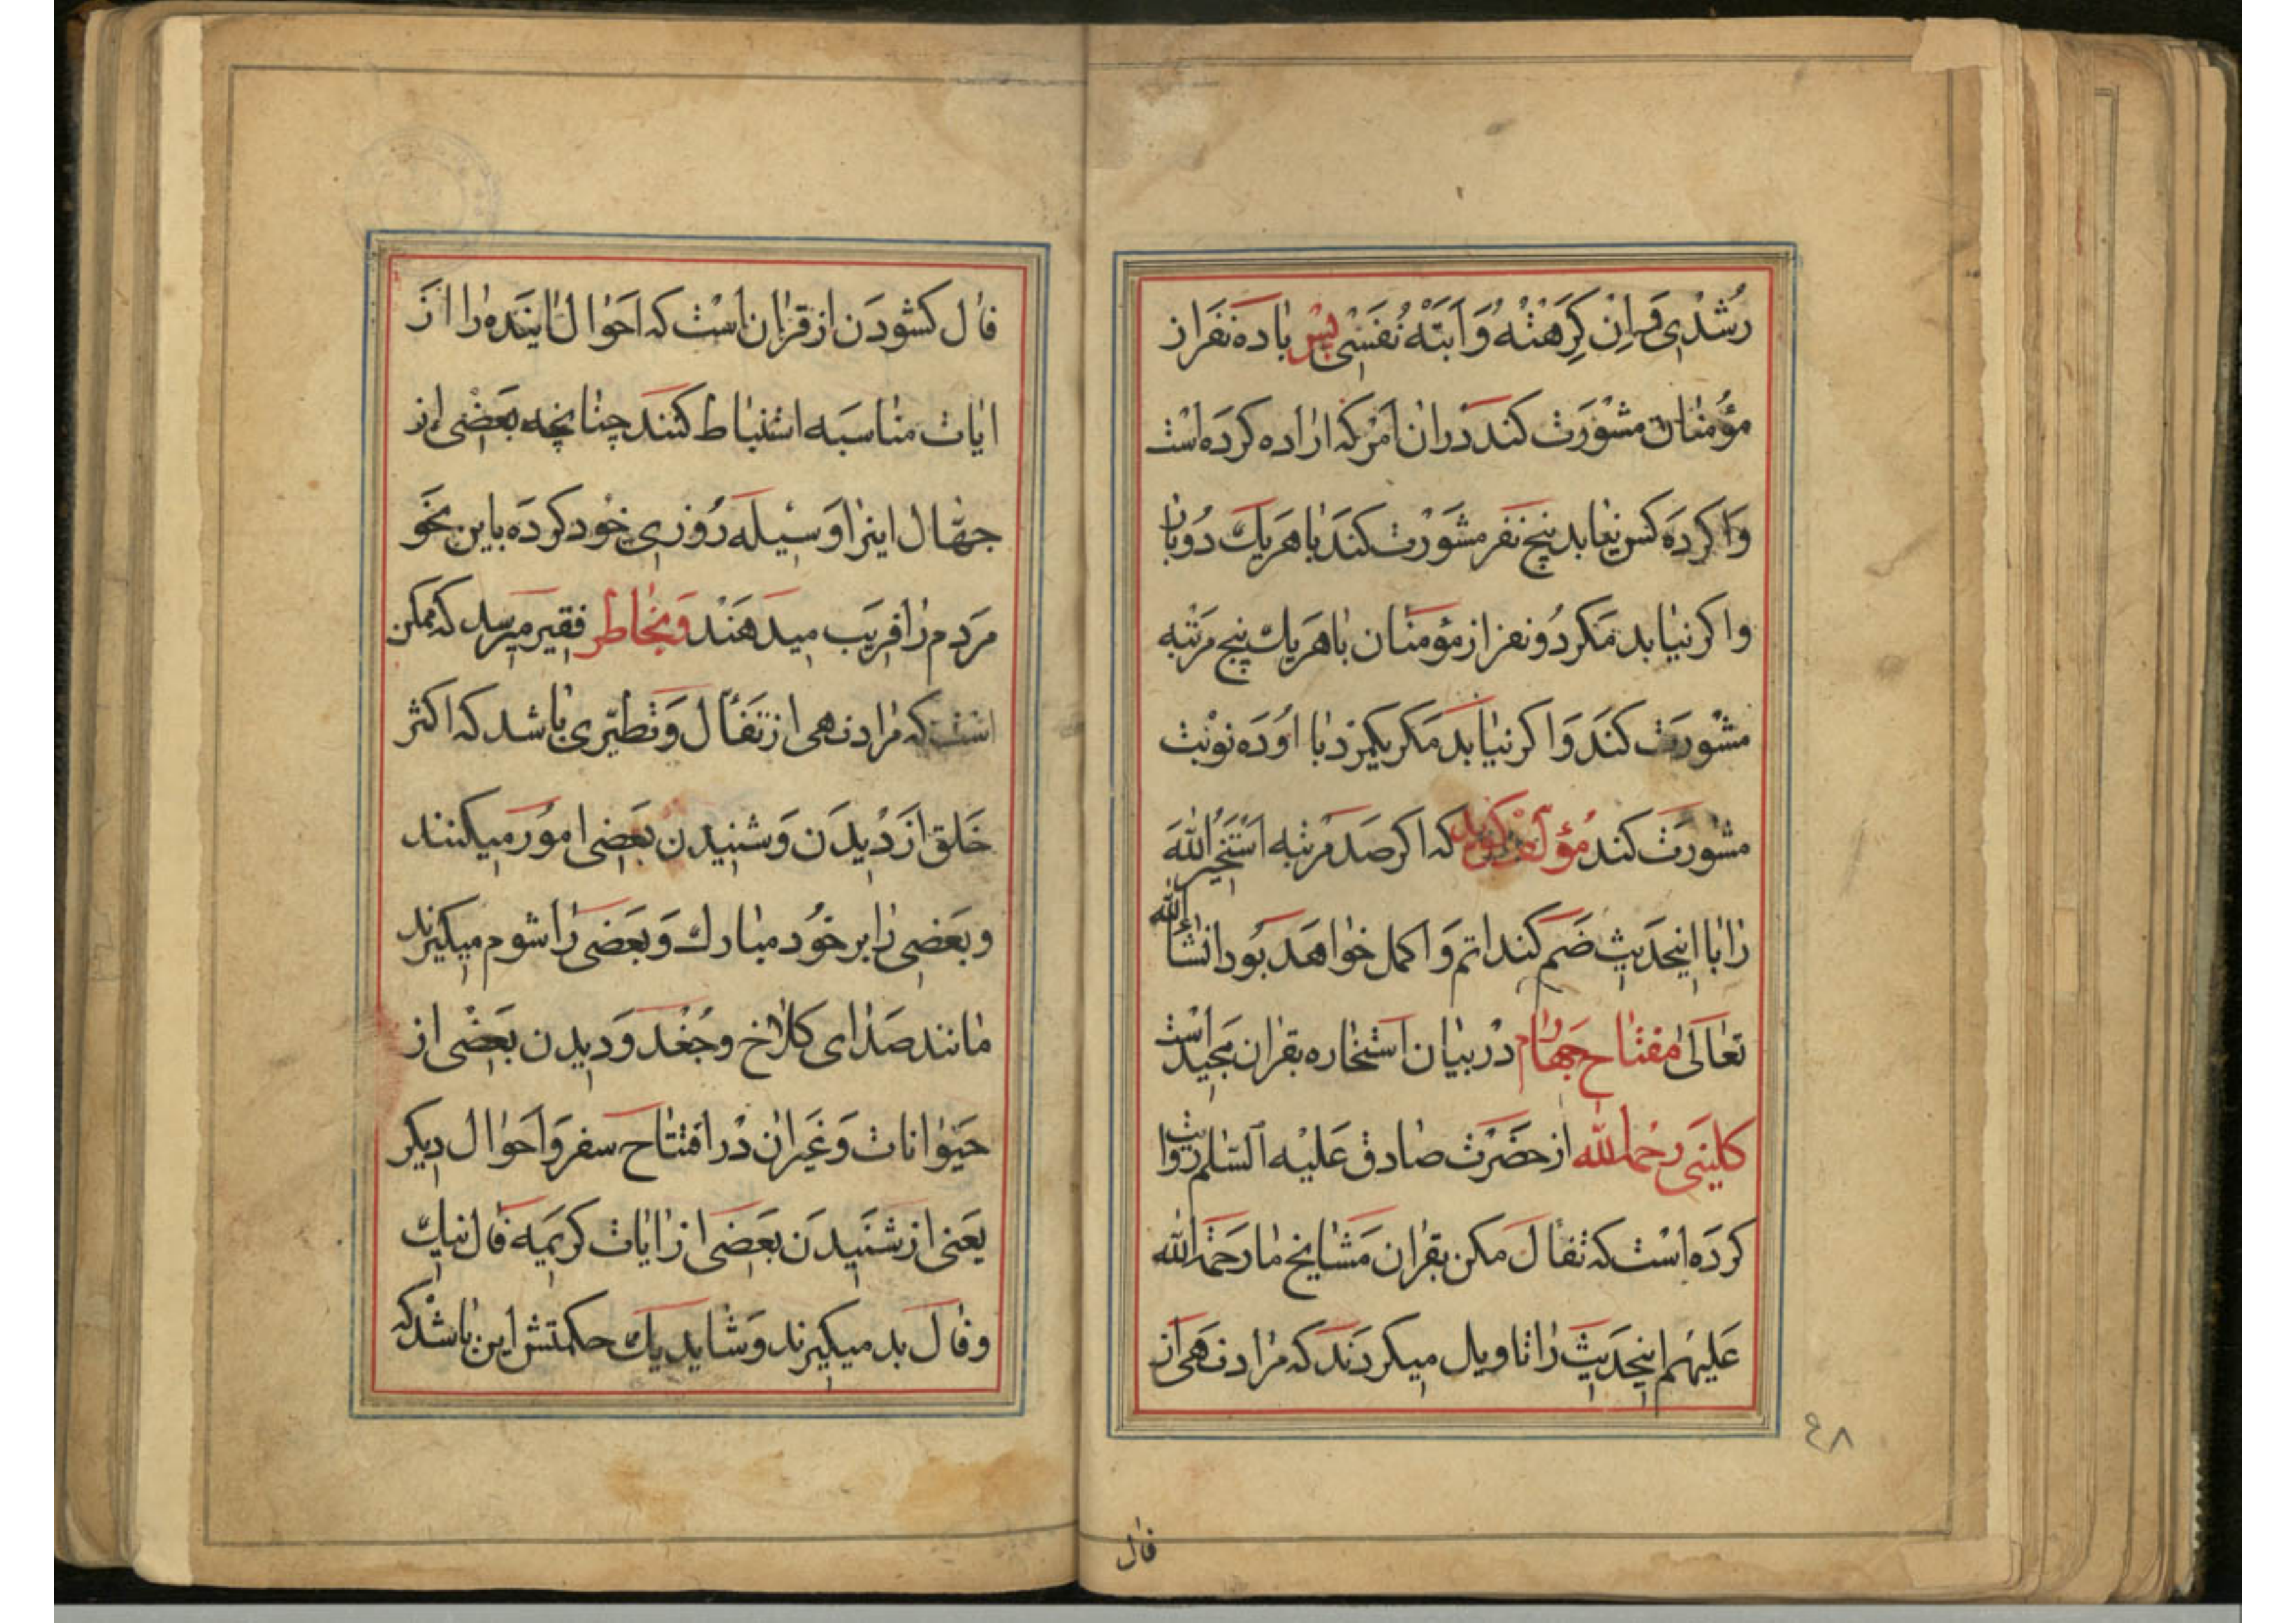 رُشْدٖی وَ اِنْ کَرِهَتْهُ وَ اَبَتْهُ نَفْسٖی پس با ده نفر از
مؤمنان مشورت کند در ان امر که اراده کرده است
وا کرده کس نیابد پنج نفر مشورت کند با هر یك دو بار
و اکر نیابد مکر دو نفر از مؤمنان با هر یك پنج مرتبه
مشورت کند و اکر نیابد مکر یکمرد با او ده نوبت
مشورت کند مؤلف کوید که اکر صد مرتبه استخیر الله
را با اینحدیث ضم کند اتم و اکمل خواهد بود انشاء الله
تعالی مفتاح چهارم در بیان استخاره بقران مجید است
کلینی رحمه الله از حضرت صادق علیه السلم روایت
کرده است که تفأل مکن بقران مشایخ ما رحمة الله
علیهم اینحدیث را تاویل میکردند که مراد نهی از
٤٨
فال
فال کشودن از قران است که احوال اینده را از
ایات مناسبه استنباط کنند چنانچه بعضی از
جهال اینرا وسیله روزی خود کرده باین نحو
مردم را فریب میدهند و بخاطر فقیر میرسد که ممکن
است که مراد نهی از تفأل و تطیری باشد که اکثر
خلق از دیدن و شنیدن بعضی امور میکنند
و بعضی را بر خود مبارك و بعضی را شوم میکیرند
مانند صدای کلاغ و جغد و دیدن بعضی از
حیوانات و غیر ان در افتتاح سفر و احوال دیکر
یعنی از شنیدن بعضی از ایات کریمه فال نیك
و فال بد میکیرند و شاید یك حکمتش این باشد که